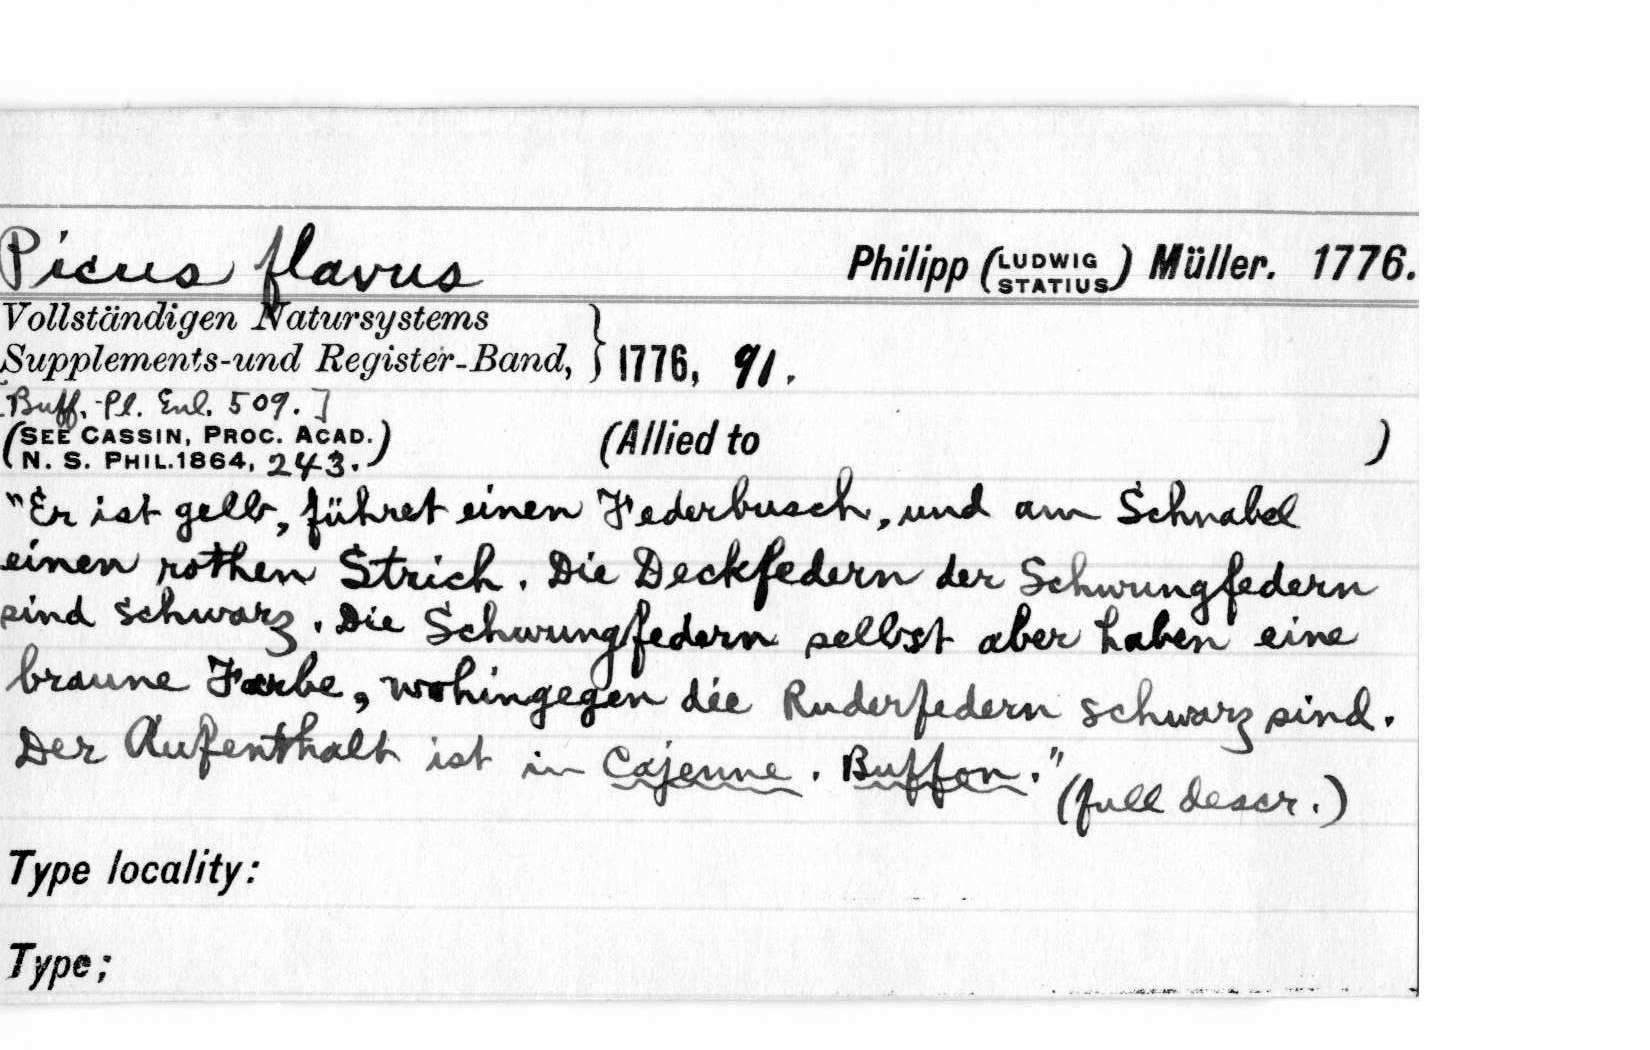 Picus flavus Philipp (LUDWIG STATIUS) Müller. 1776.
Vollständigen Natursystems
Supplements-und Register-Band, } 1776, 91.
[Buff. Pl. Enl. 509.]
(SEE CASSIN, PROC. ACAD. (Allied to )
N. S. PHIL. 1864, 243.)
"Er ist gelb, führet einen Federbusch, und am Schnabel
einen rothen Strich. Die Deckfedern der Schwungfedern
sind schwarz. Die Schwungfedern selbst aber haben eine
braune Farbe, wohingegen die Ruderfedern schwarz sind.
Der Aufenthalt ist in Cajenne. Buffon."
(full descr.)
Type locality:
Type;